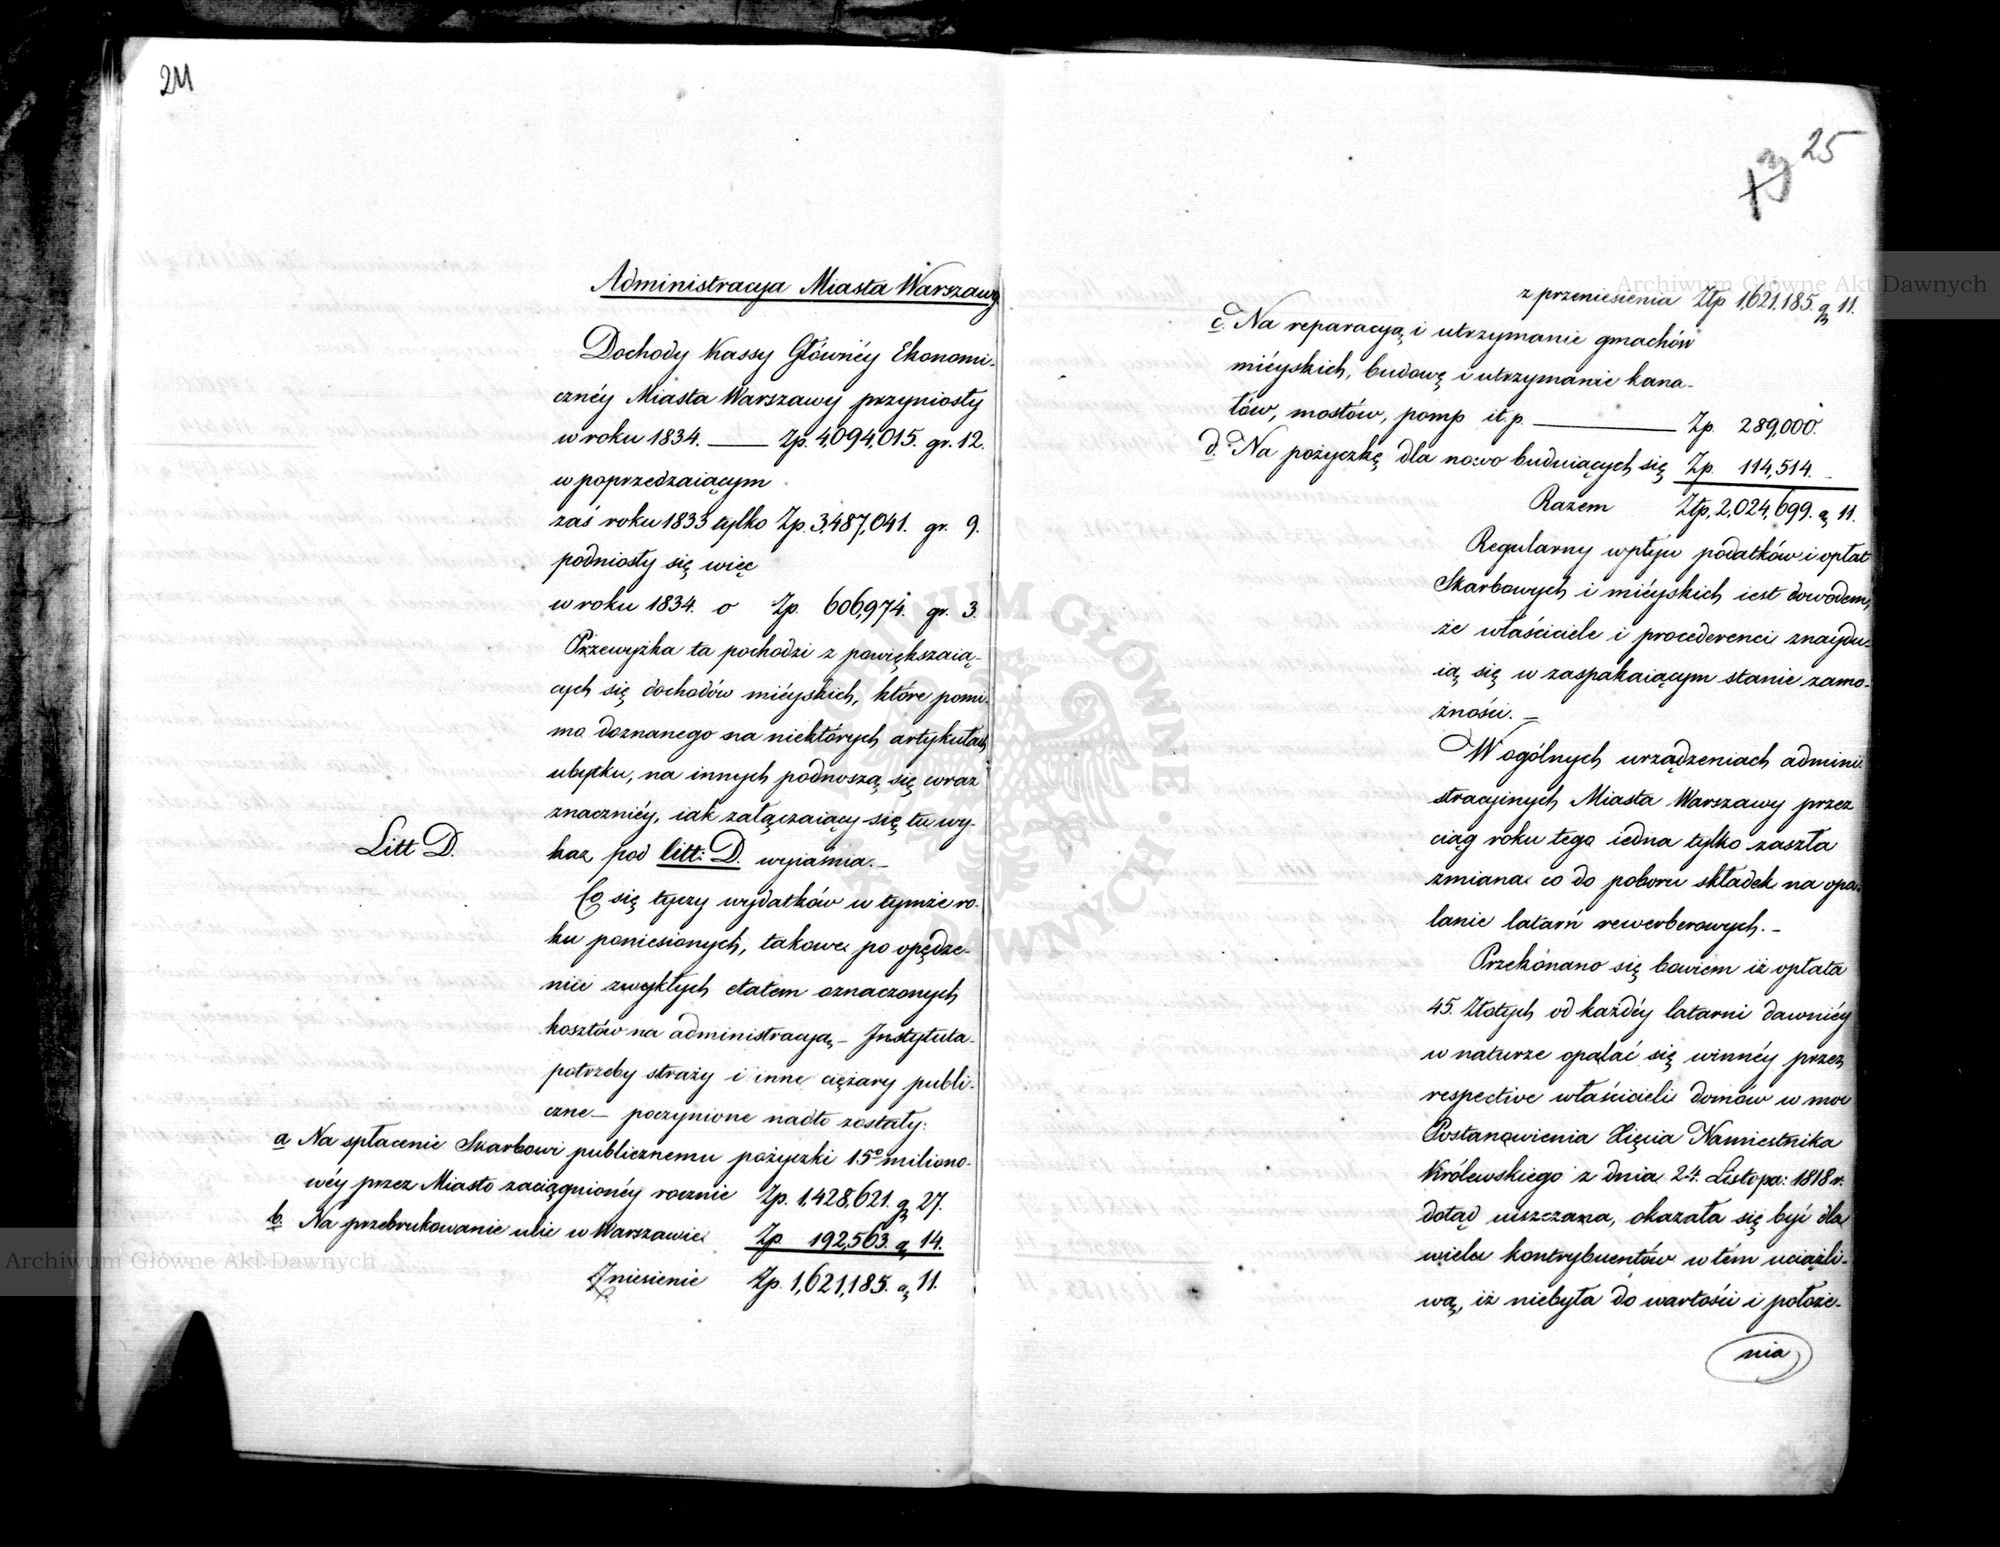 24
Administracya Miasta Warszawy
Dochody Kassy Głównéy Ekonomi-
cznéy Miasta Warszawy przyniosły
w roku 1834. — Zp. 4,094,015. gr. 12.
w poprzedzaiącym
zaś roku 1833 tylko Zp. 3,487,041. gr. 9.
podniosły się więc
w roku 1834. o Zp. 606,974. gr. 3.
Przewyżka ta pochodzi z powiększaią-
cych się dochodów miéyskich, które pomi-
mo doznanego na niektórych artykułach
ubytku, na innych podnoszą się coraz
znaczniéy, iak załączaiący się tu wy-
Litt D.
kaz pod litt: D. wyiaśnia. —
Co się tyczy wydatków w tymże ro-
ku poniesionych, takowe po opędze-
niu zwykłych etatem oznaczonych
kosztów na administracyą, — Instytuta
potrzeby straży i inne ciężary publi-
czne — poczynione nadto zostały:
a Na spłacenie Skarbowi publicznemu pożyczki 15º miliono-
wéy przez Miasto zaciągnionéy rocznie Zp. 1,428,621. g 27.
b. Na przebrukowanie ulic w Warszawie Zp 192,563. g 14.
Zniesienie Zp. 1,621,185. g 11.
25
z przeniesienia Złp 1,621,185. g 11.
c. Na reparacyą i utrzymanie gmachów
miéyskich, budowę i utrzymanie kana-
łów, mostów, pomp it.p. — Zp. 289,000.
d. Na pożyczkę dla nowo buduiących się Zp. 114,514. —
Razem Złp. 2,024,699. g 11.
Regularny wpływ podatków i opłat
Skarbowych i miéyskich iest dowodem,
że właściciele i procederenci znaydu-
ią się w zaspakaiąącym stanie zamo-
żności. —
W ogólnych urządzeniach admini-
stracyinych Miasta Warszawy przez
ciąg roku tego iedna tylko zaszła
zmiana co do poboru składek na opa-
lanie latarń rewerberowych. —
Przekonano się bowiem iż opłata
45. Złotych od każdéy latarni dawniéy
w naturze opalać się winnéy przez
respective właścicieli domów w moc
Postanowienia Xięcia Namiestnika
Królewskiego z dnia 24. Listopa: 1818 r.
dotąd uiszczana, okazała się być dla
wielu kontrybuentów w tém uciążli-
wą, iż niebyła do wartości i położe-
nia
Archiwum Główne Akt Dawnych
Archiwum Główne Akt Dawnych
ARCHIWUM GŁÓWNE AKT DAWNYCH